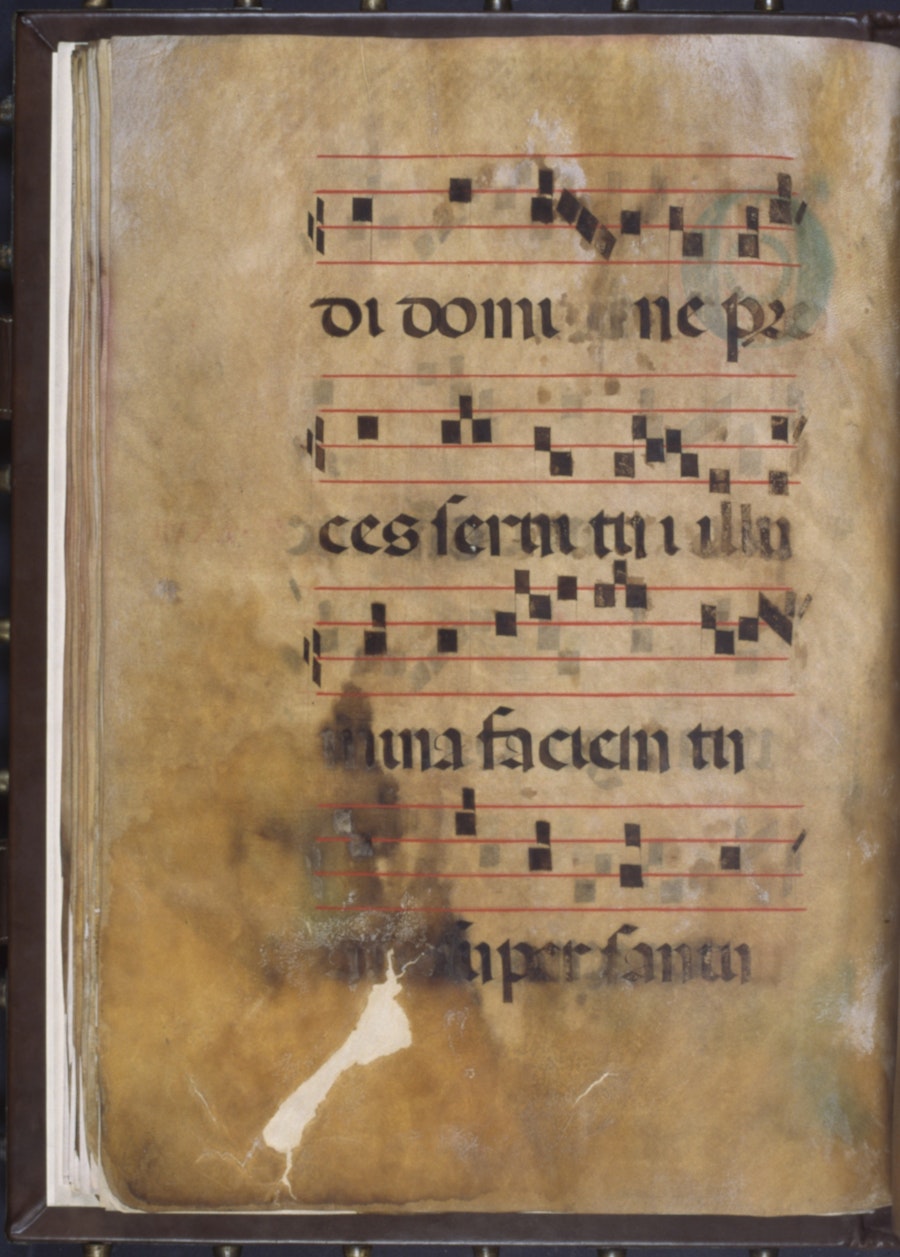 di domi ne pre
ces servi tui illu
mina faciem tu
super sanctu